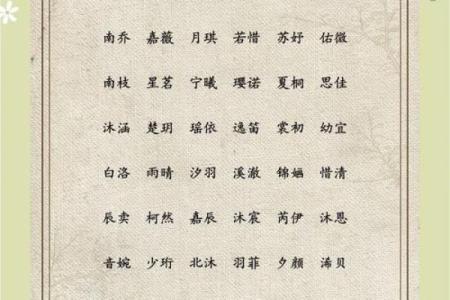 南乔 嘉薇 月琪 若惜 苏妤 佑微
南枝 星茗 宁曦 璎诺 夏桐 思佳
沐涵 楚玥 瑶依 逸笛 裳初 幼宜
白洛 雨晴 汐羽 溪澈 锦婳 惜清
辰卖 柯然 嘉辰 沐宸 芮伊 沐恩
音婉 少珩 北沐 羽菲 夕颜 浠贝